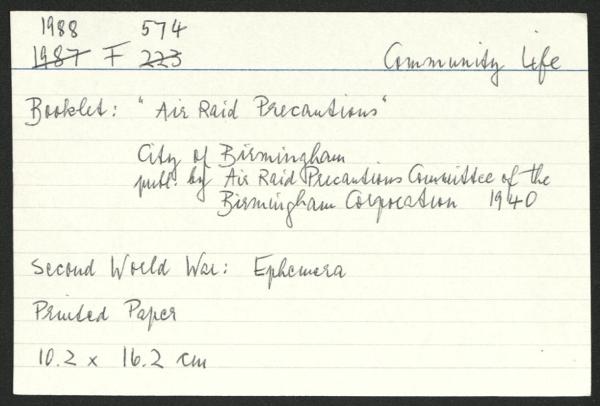 1988 574
1987 F 223 Community Life
Booklet: "Air Raid Precautions"
City of Birmingham
publ. by Air Raid Precautions Committee of the
Birmingham Corporation 1940
Second World War: Ephemera
Printed Paper
10.2 x 16.2 cm